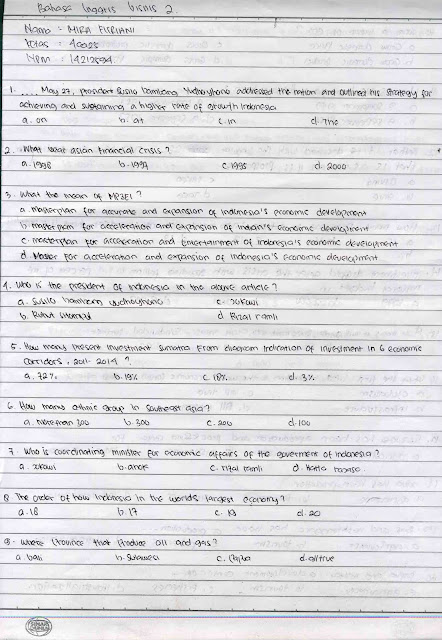 Bahasa Inggris bisnis 2.
Nama : MIRA FITRIANI
Kelas : 4EA23
NPM : 14212594
1. .... May 27, president Susilo bambang Yudhoyhono addressed the nation and outlined his strategy for
achieving and sustaining a higher rate of growth Indonesia
a. on b. at c. in d. The
2. What year asian financial crisis ?
a. 1998 b. 1997 c. 1995 d. 2000
3. What the mean of MP3EI ?
a. Masterplan for accurate and expansion of Indonesia's economic development
b. masterplan for acceleration and expansion of indian's economic development
c. masterplan for acceleration and Entertainment of Indonesia's economic development
d. Master for acceleration and expansion of Indonesia's Economic development
4. Who is the president of Indonesia in the above article ?
a. Susilo bambang Yudhoyhono c. Jokowi
b. Ruhut d. Rizal ramli
5. How many present investment Sumatra From diagram Indication of Investment in 6 economic
Corridors, 2011-2014 ?
a. 72% b. 19% c. 18% d. 3%
6. How many ethnic group in Southeast asia?
a. more than 300 b. 300 c. 200 d. 100
7. Who is coordinating minister for economic affairs of the goverment of Indonesia ?
a. Jokowi b. anok c. rizal ramli d. Hatta
8. The order of how Indonesia in the world's largest economy?
a. 18 b. 17 c. 19 d. 20
9. Where Province that Produce oil and gas?
a. bali b. Sulawesi c. Papua d. all true